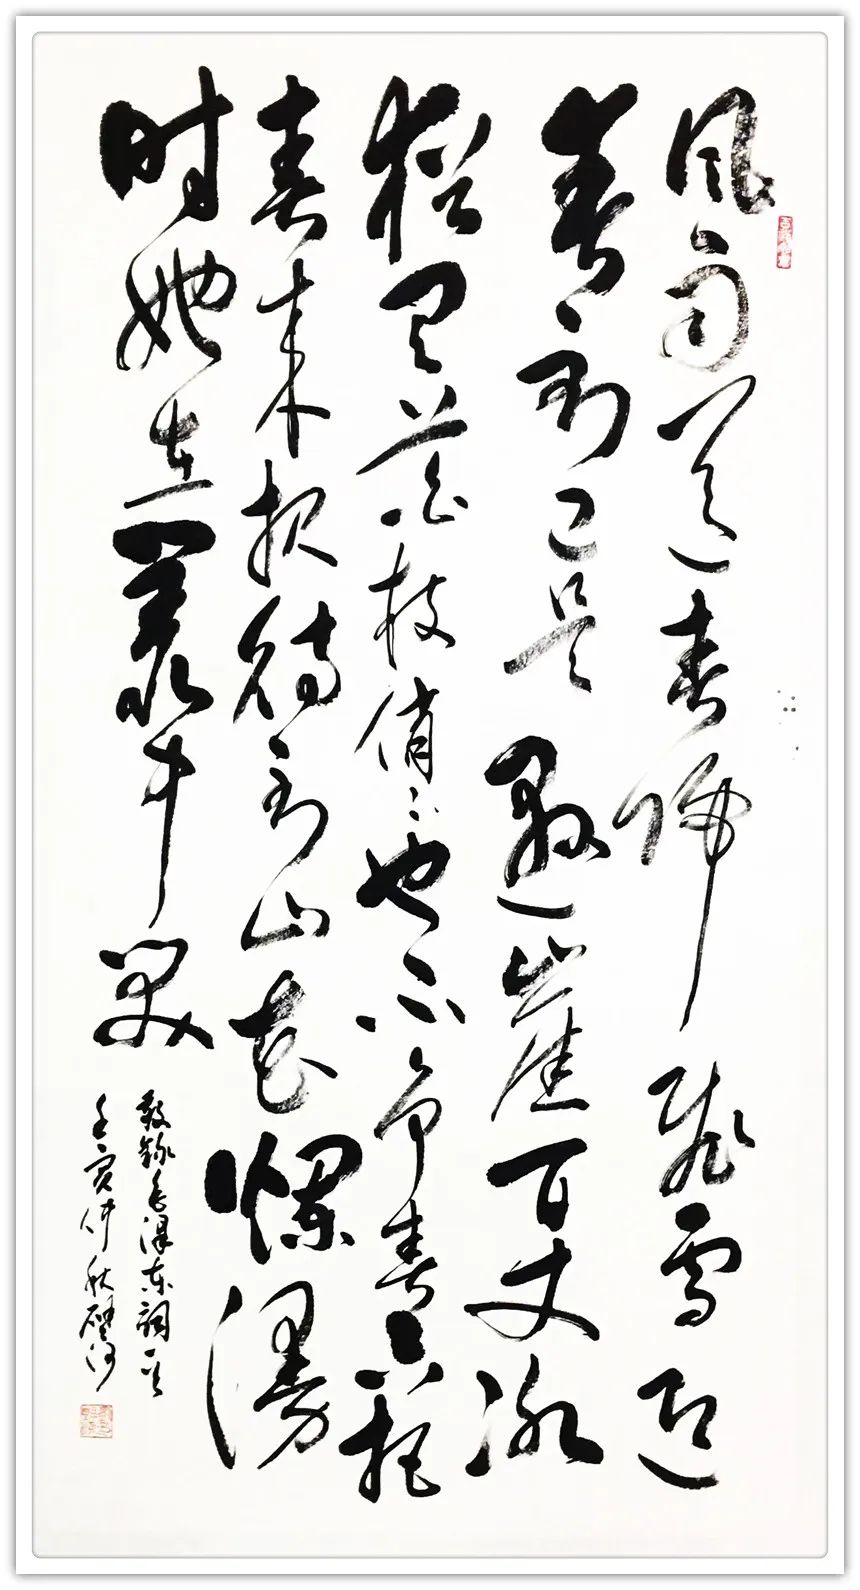 风雨送春归飞雪迎
春到已是悬崖百丈冰
犹有花枝俏々也不争春只把
春来报待到山花爛漫
时她在叢中笑
敬録毛泽东詞一首
壬寅仲秋